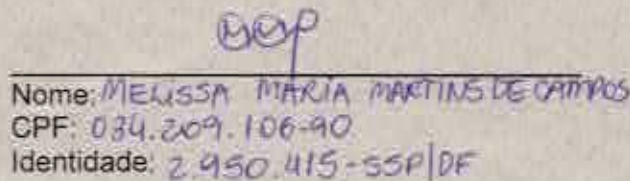 Nome: MELISSA MARIA MARTINS DE CAMPOS
CPF: 034.209.106-90
Identidade: 2.950.415-SSP|DF